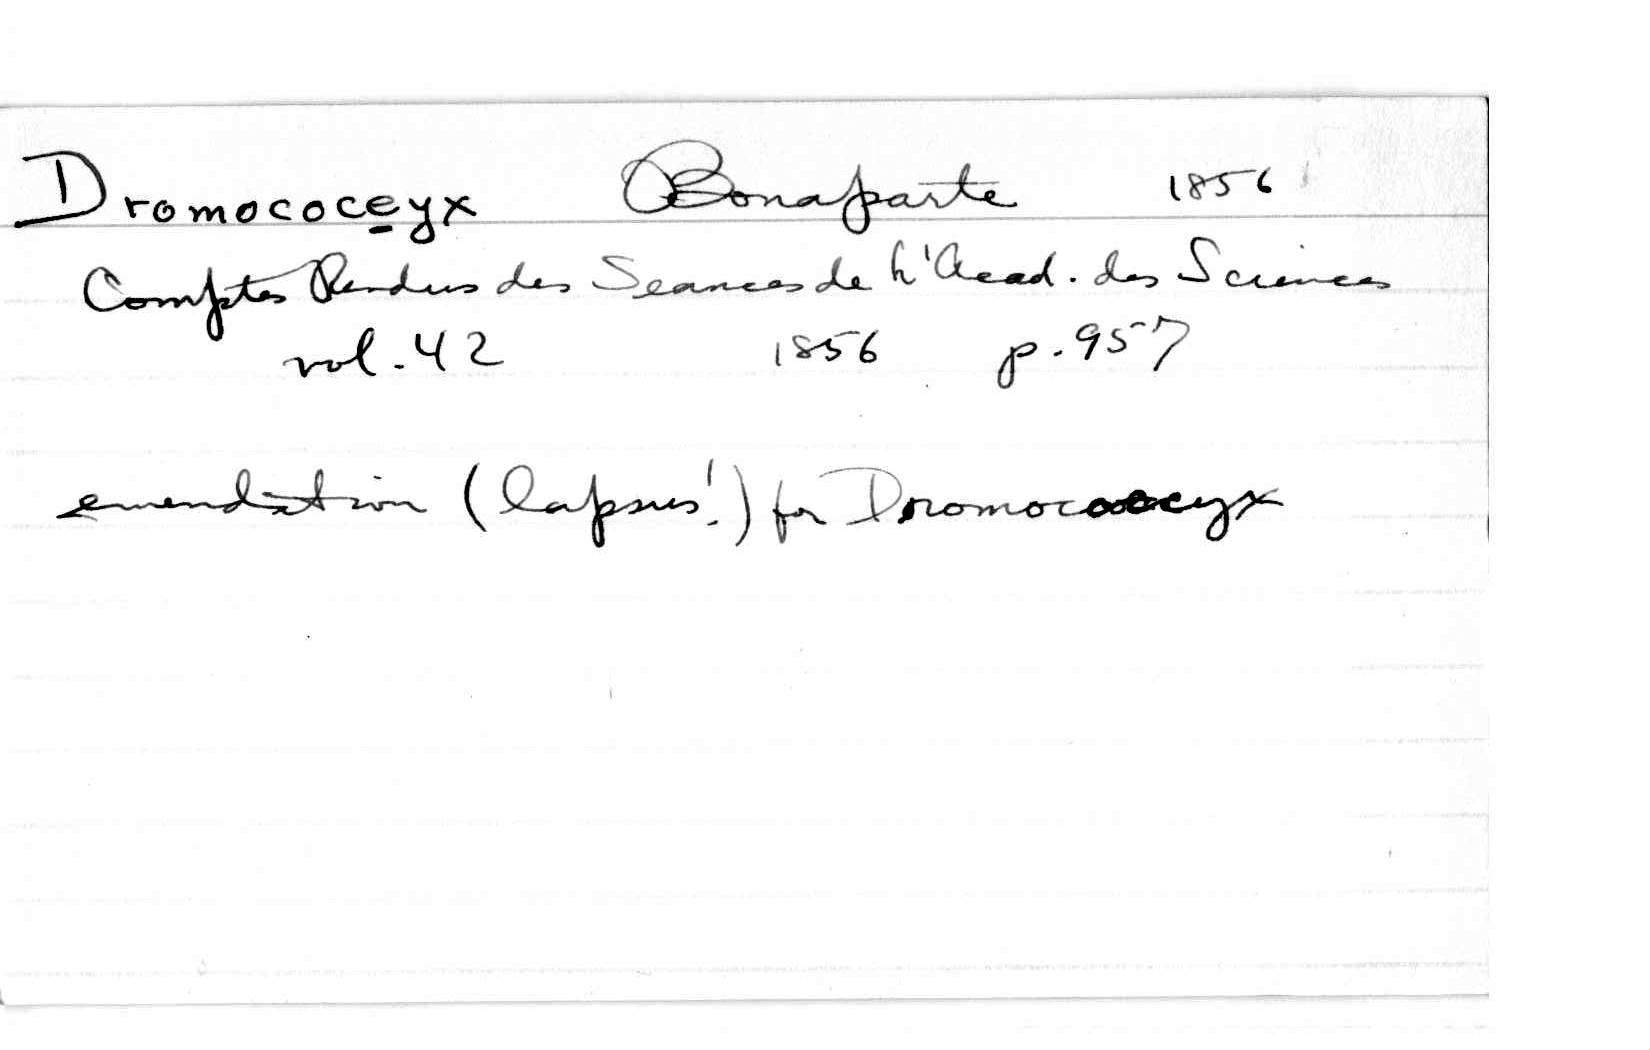 Dromococeyx Bonaparte 1856
Comptes Rendus des Seances de L'Acad. des Sciences
vol. 42 1856 p. 957
emendation (lapsus!) for Dromococcyx